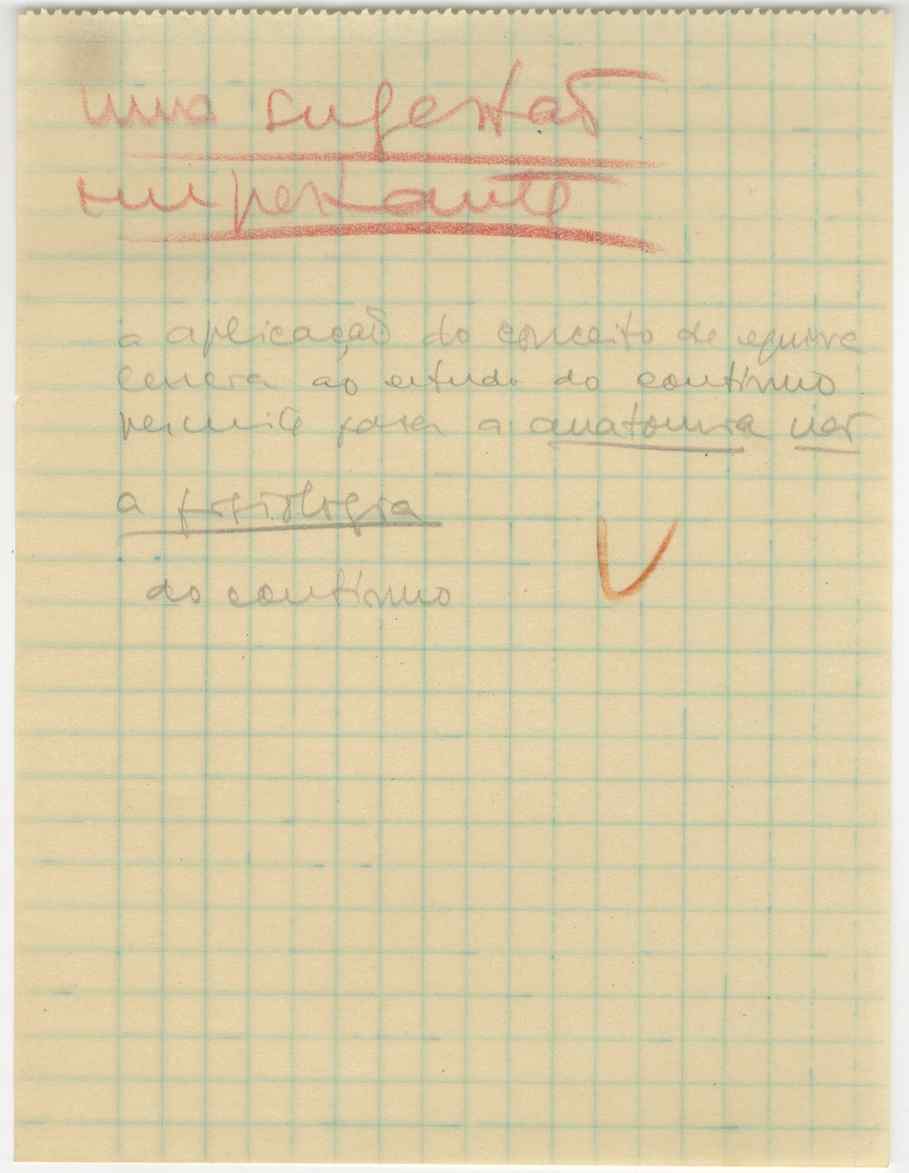 uma sugestão
importante
a aplicação do conceito de equiva
lencia ao estudo do contínuo
permite fazer a anatomia não
a fisiologia
do contínuo